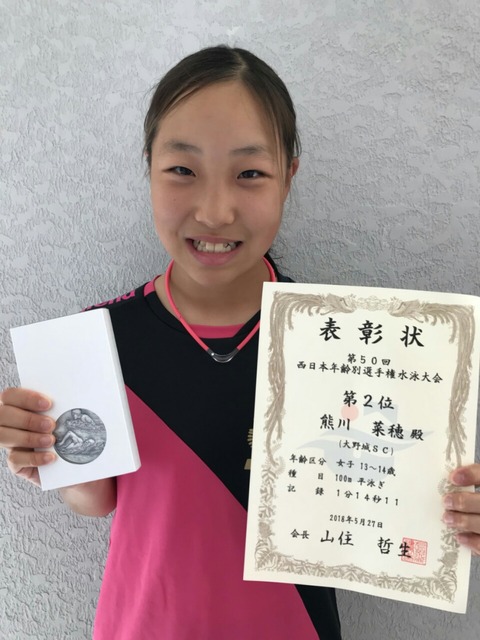 表彰状
第50回
西日本年齢別選手権水泳大会
第2位
熊川 菜穂 殿
(大野城SC)
年齢区分 女子 13〜14歳
種目 100m 平泳ぎ
記録 1分14秒11
2018年5月27日
会長 山住 哲生